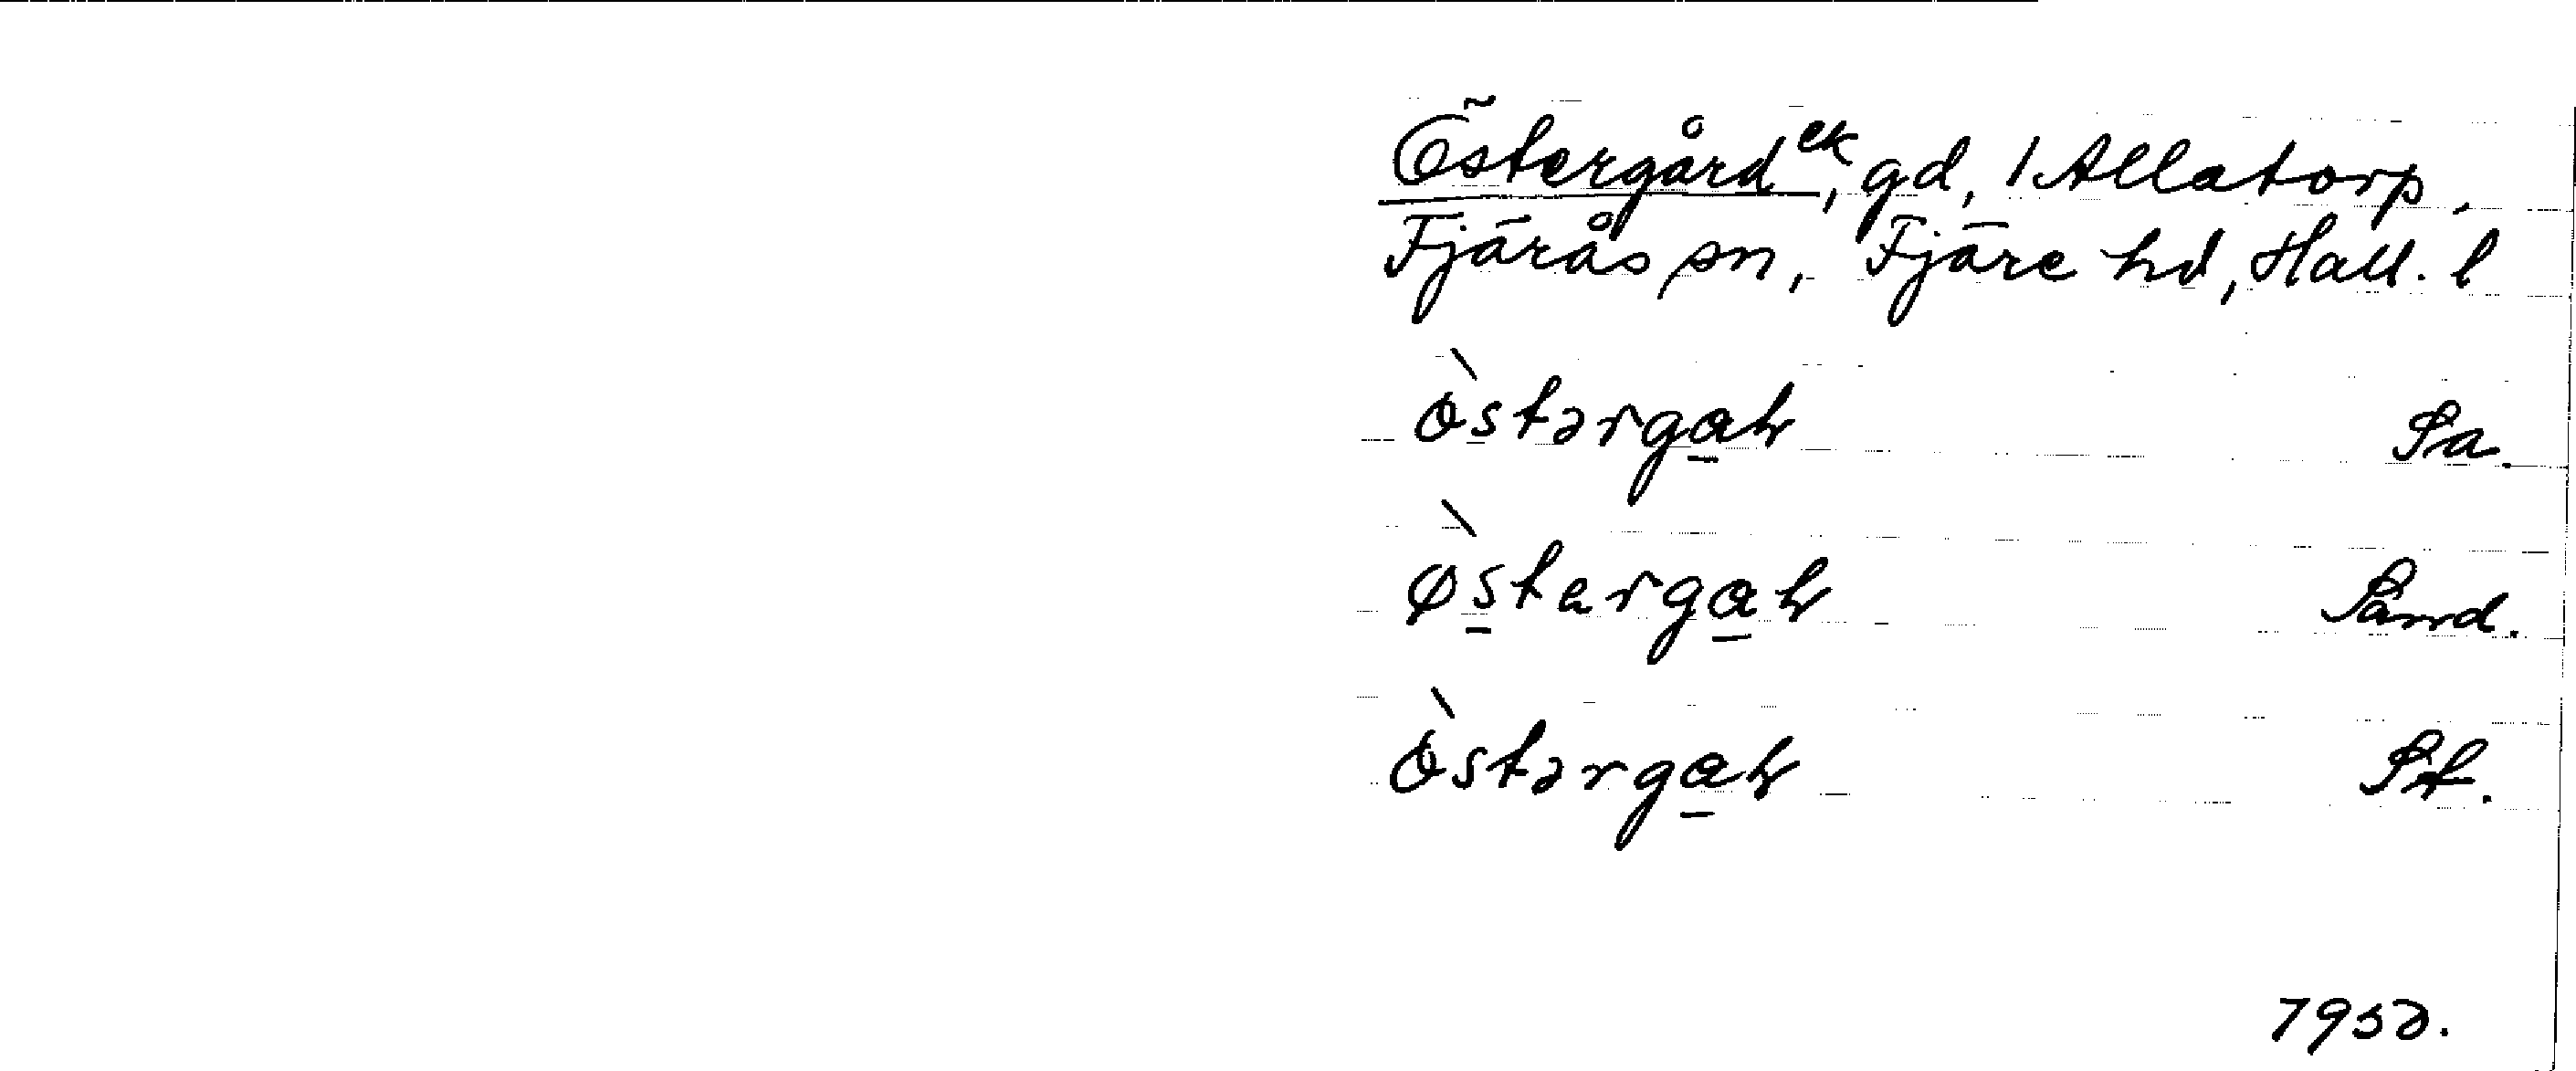 Östergård ek, gd, 1 Allatorp,
Fjärås sn, Fjäre hd, Hall. l
östərgaɽ Sa.
østergaɽ Sand.
östərgaɽ St.